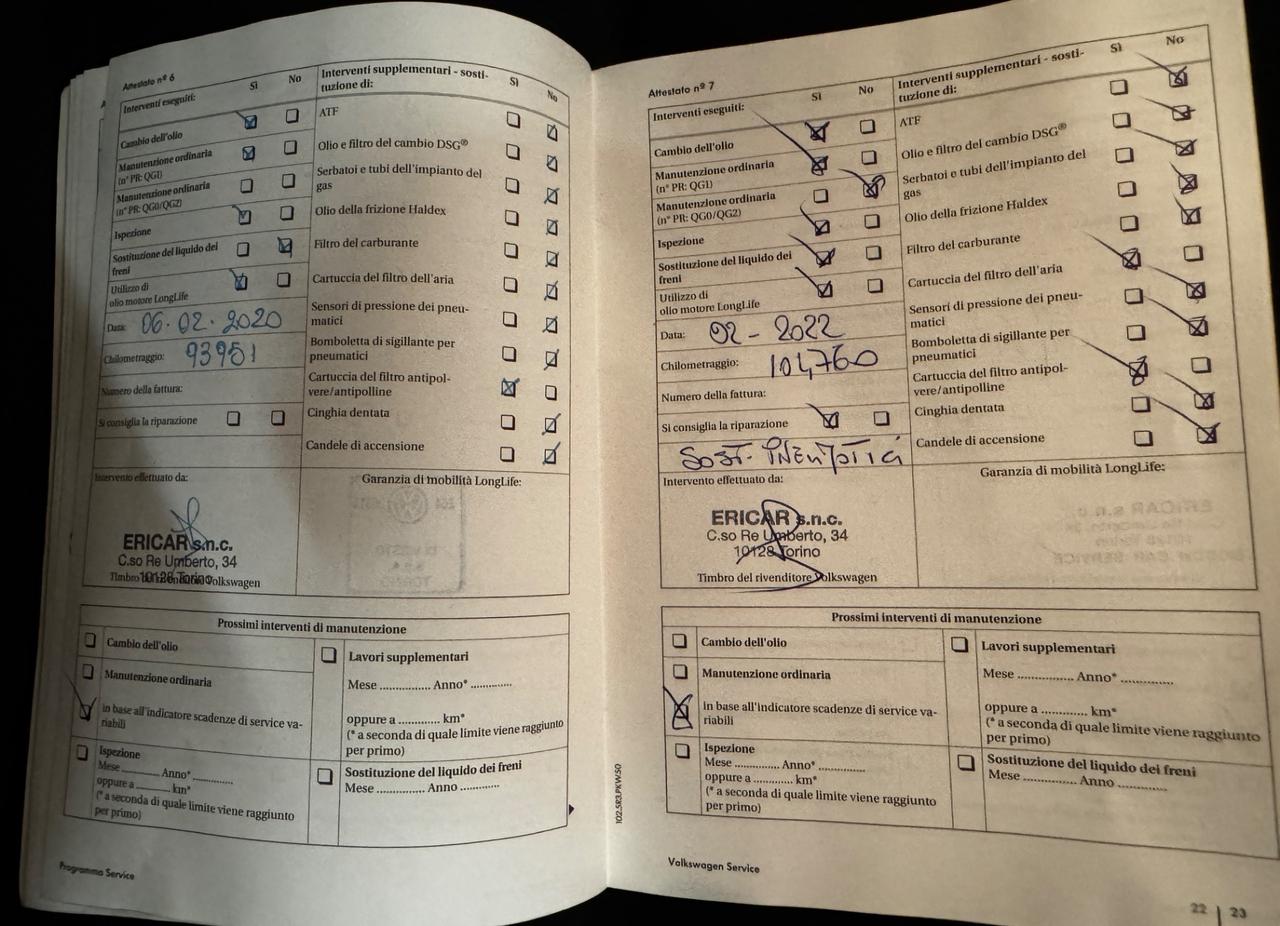 Attestato nº 6
Interventi eseguiti:
Sì
No
Cambio dell'olio
Manutenzione ordinaria
(nº PR: QG1)
Manutenzione ordinaria
(nº PR: QG0/QG2)
Ispezione
Sostituzione del liquido dei
freni
Utilizzo di
olio motore LongLife
Data: 06.02.2020
Chilometraggio: 93951
Numero della fattura:
Si consiglia la riparazione
Intervento effettuato da:
ERICAR s.n.c.
C.so Re Umberto, 34
10128 Torino
Timbro del rivenditore Volkswagen
Interventi supplementari - sosti-
tuzione di:
Sì
No
ATF
Olio e filtro del cambio DSG®
Serbatoi e tubi dell'impianto del
gas
Olio della frizione Haldex
Filtro del carburante
Cartuccia del filtro dell'aria
Sensori di pressione dei pneu-
matici
Bomboletta di sigillante per
pneumatici
Cartuccia del filtro antipol-
vere/antipolline
Cinghia dentata
Candele di accensione
Garanzia di mobilità LongLife:
Prossimi interventi di manutenzione
Cambio dell'olio
Manutenzione ordinaria
in base all'indicatore scadenze di service va-
riabili
Ispezione
Mese ............ Anno* ............
oppure a ............ km*
(* a seconda di quale limite viene raggiunto
per primo)
Lavori supplementari
Mese ............... Anno* ............
oppure a ............ km*
(* a seconda di quale limite viene raggiunto
per primo)
Sostituzione del liquido dei freni
Mese .............. Anno ............
Programma Service
Attestato nº 7
Interventi eseguiti:
Sì
No
Cambio dell'olio
Manutenzione ordinaria
(nº PR: QG1)
Manutenzione ordinaria
(nº PR: QG0/QG2)
Ispezione
Sostituzione del liquido dei
freni
Utilizzo di
olio motore LongLife
Data: 02 - 2022
Chilometraggio: 104760
Numero della fattura:
Si consiglia la riparazione
SOST. PNEUMATICI
Intervento effettuato da:
ERICAR s.n.c.
C.so Re Umberto, 34
10128 Torino
Timbro del rivenditore Volkswagen
Interventi supplementari - sosti-
tuzione di:
Sì
No
ATF
Olio e filtro del cambio DSG®
Serbatoi e tubi dell'impianto del
gas
Olio della frizione Haldex
Filtro del carburante
Cartuccia del filtro dell'aria
Sensori di pressione dei pneu-
matici
Bomboletta di sigillante per
pneumatici
Cartuccia del filtro antipol-
vere/antipolline
Cinghia dentata
Candele di accensione
Garanzia di mobilità LongLife:
Prossimi interventi di manutenzione
Cambio dell'olio
Manutenzione ordinaria
in base all'indicatore scadenze di service va-
riabili
Ispezione
Mese ............ Anno* ............
oppure a ............ km*
(* a seconda di quale limite viene raggiunto
per primo)
Lavori supplementari
Mese ............... Anno* ............
oppure a ............ km*
(* a seconda di quale limite viene raggiunto
per primo)
Sostituzione del liquido dei freni
Mese .............. Anno ............
102.5R3.PKW.50
Volkswagen Service
22 | 23